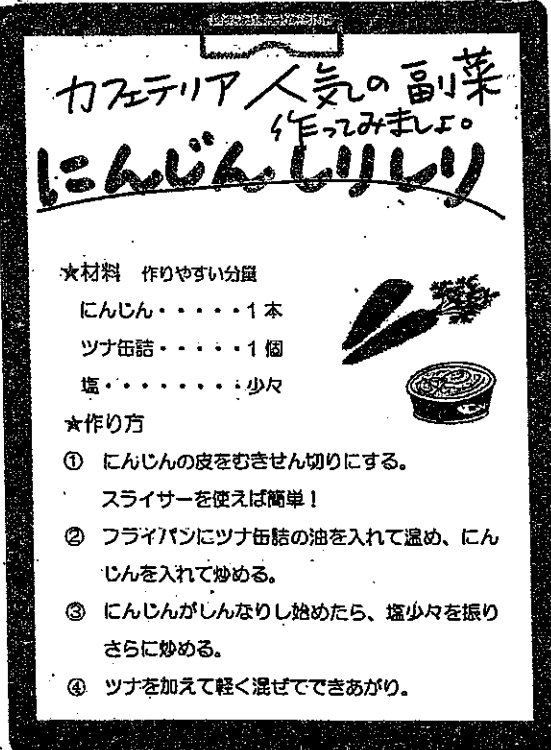 カフェテリア人気の副菜
作ってみましょ。
にんじんしりしり
★材料 作りやすい分量
にんじん・・・・・1本
ツナ缶詰・・・・・1個
塩・・・・・・・・少々
★作り方
① にんじんの皮をむきせん切りにする。
スライサーを使えば簡単！
② フライパンにツナ缶詰の油を入れて温め、にん
じんを入れて炒める。
③ にんじんがしんなりし始めたら、塩少々を振り
さらに炒める。
④ ツナを加えて軽く混ぜてできあがり。